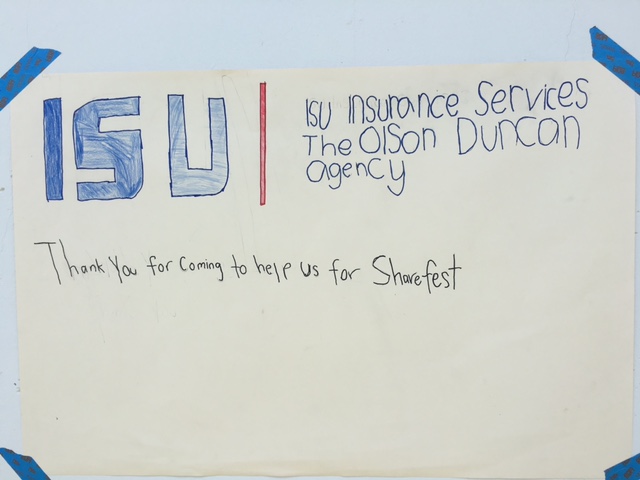 ISU
ISU Insurance Services
The Olson Duncan
agency
Thank You for Coming to help us for Sharefest